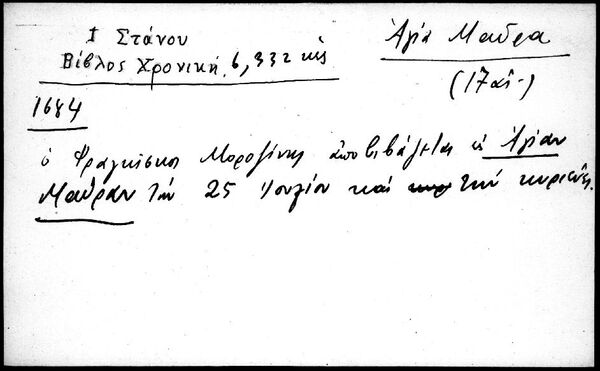 Ι Στάνου
Βίβλος Χρονική 6, 332 κἑ
Ἁγία Μαύρα
(17 αἰ-)
1684
ὁ Φραγκίσκος Μοροζίνης ἀποβιβάζεται εἰς Ἁγίαν
Μαῦραν τήν 25 Ἰουλίου καί τήν κυριεύει.